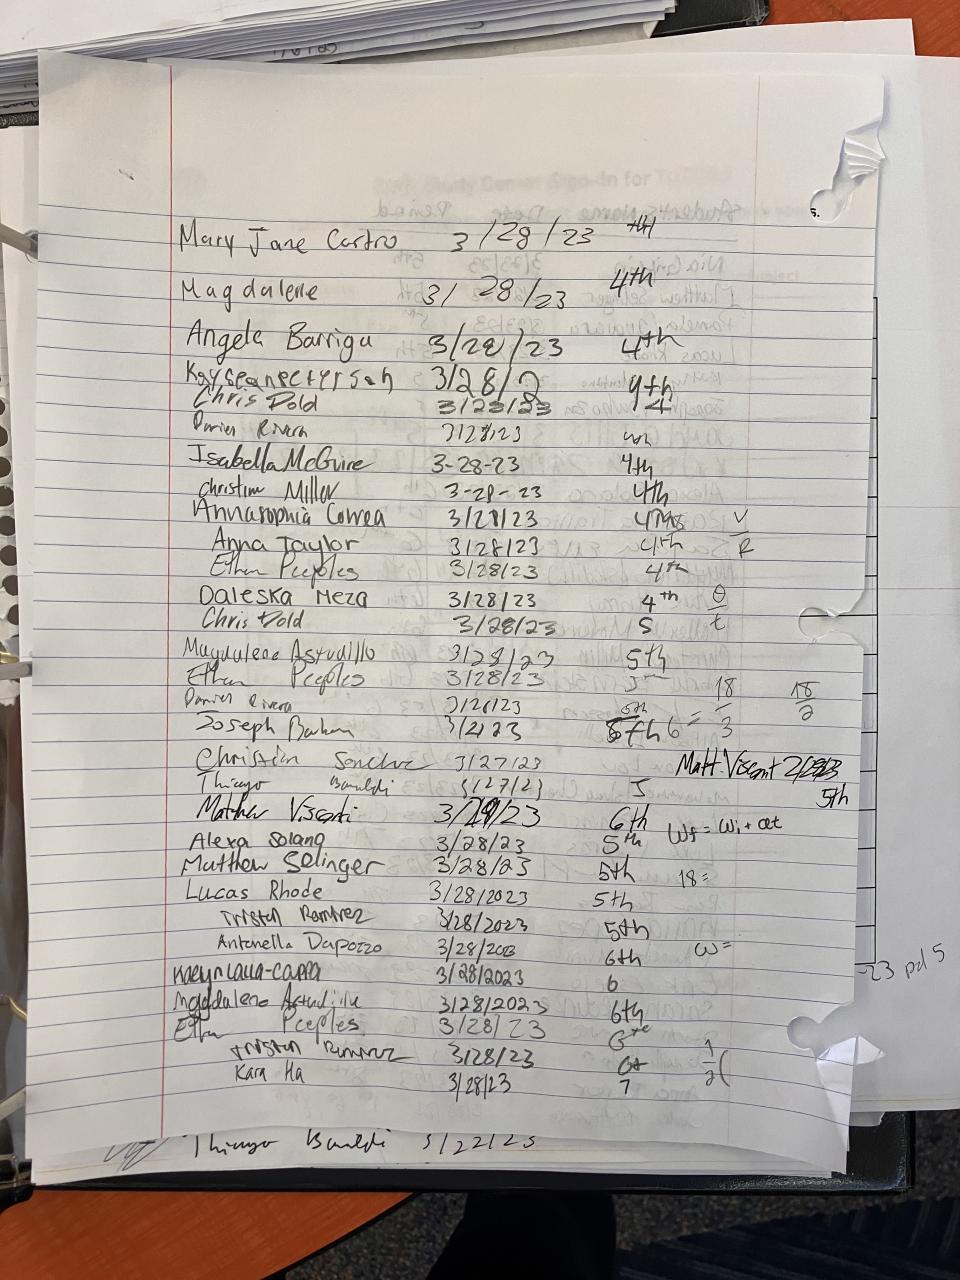 Mary Jane Castro 3/28/23 4th
Magdalene 3/28/23 4th
Angela Barriga 3/28/23 4th
3/28/2 4th
Chris Dold 3/23/23 4
Darien Rivera 3/28/23 4th
Isabella McGuire 3-28-23 4th
Christian Miller 3-28-23 4th
Annasophia Correa 3/28/23 V
Anna Taylor 3/28/23 4th R
Ethan Peeples 3/28/23 4th
Daleska Meza 3/28/23 4th θ
Chris Dold 3/28/23 5 t
Magdalene Astudillo 3/28/23 5th
Ethan Peeples 3/28/23 5 18 18
Darien Rivera 3/28/23 5th 2
Joseph 5th 6 = 3
Christian Sanchez 3/27/23 Matt. Visconti
Thiago 3/27/23 5 5th
Matthew Visconti 23 6th
Alexa Solano 3/28/23 5th Wf = Wi + αt
Matthew Selinger 3/28/23 5th 18=
Lucas Rhode 3/28/2023 5th
Tristan Ramirez 3/28/2023 5th
Antonella Dapozzo 3/28/2023 6th W=
3/28/2023 6 -23 pd 5
Magdalene Astudillo 3/28/2023 6th
Ethan Peeples 3/28/23 1
Tristan Ramirez 3/28/23 2 (
Kara Ha 3/28/23 7
Thiago 3/22/23